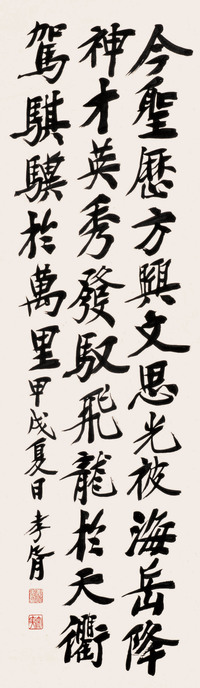 今聖歷方興文思光被海岳降
神才英秀發馭飛龍於天衢
駕騏驥於萬里甲戌夏日孝胥